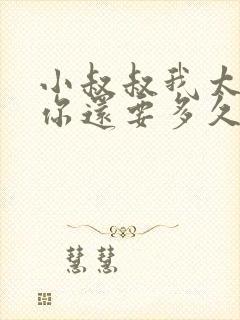 小叔叔我大
你還要多久
慧慧